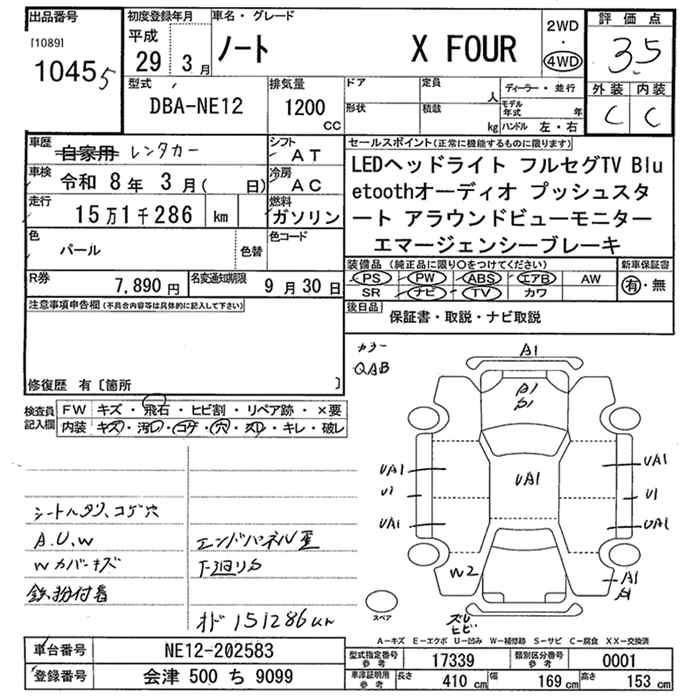 出品番号
[1089]
10455
初度登録年月
平成
29年 3月
車名・グレード
ノート X FOUR
2WD
・
4WD
評価点
3.5
外装 内装
C C
型式
DBA-NE12
排気量
1200
CC
ドア
形状
定員
人
積載
kg
ディーラー・並行
モデル年式 年
ハンドル 左・右
車歴
自家用 レンタカー
シフト
AT
車検
令和 8年 3月( 日)
冷房
AC
走行
15万1千286 km
燃料
ガソリン
色
パール
色替
色コード
R券
7,890円
名変通知期限
9月30日
セールスポイント(正常に機能するものに限ります)
LEDヘッドライト フルセグTV Blu
etoothオーディオ プッシュスタ
ート アラウンドビューモニター
エマージェンシーブレーキ
装備品(純正品に限り○をつけてください)
PS PW ABS エアB AW
SR ナビ TV カワ
新車保証書
有・無
後日品
保証書・取説・ナビ取説
注意事項申告欄(不具合内容等は具体的に記入して下さい)
修復歴 有〔箇所 〕
検査員
記入欄
FW キズ・飛石・ヒビ割・リペア跡・×要
内装 キズ・汚レ・コゲ・穴・スレ・キレ・破レ
シートルタリ、コゲ穴
A.U.W
Wカバーキズ
鉄粉付着
エンドパネル歪
下廻リサ
オド151286km
カラー
QAB
A1
A1
UA1
UA1
UA1
U1
U1
UA1
UA1
W2
A1
ズレ
ヒビ
スペア
A-キズ E-エクボ U-凹み W-補修跡 S-サビ C-腐食 XX-交換済
車台番号
NE12-202583
登録番号
会津 500 ち 9099
型式指定番号
参考
17339
類別区分番号
参考
0001
車庫証明用
参考
長さ 410cm
幅 169cm
高さ 153cm